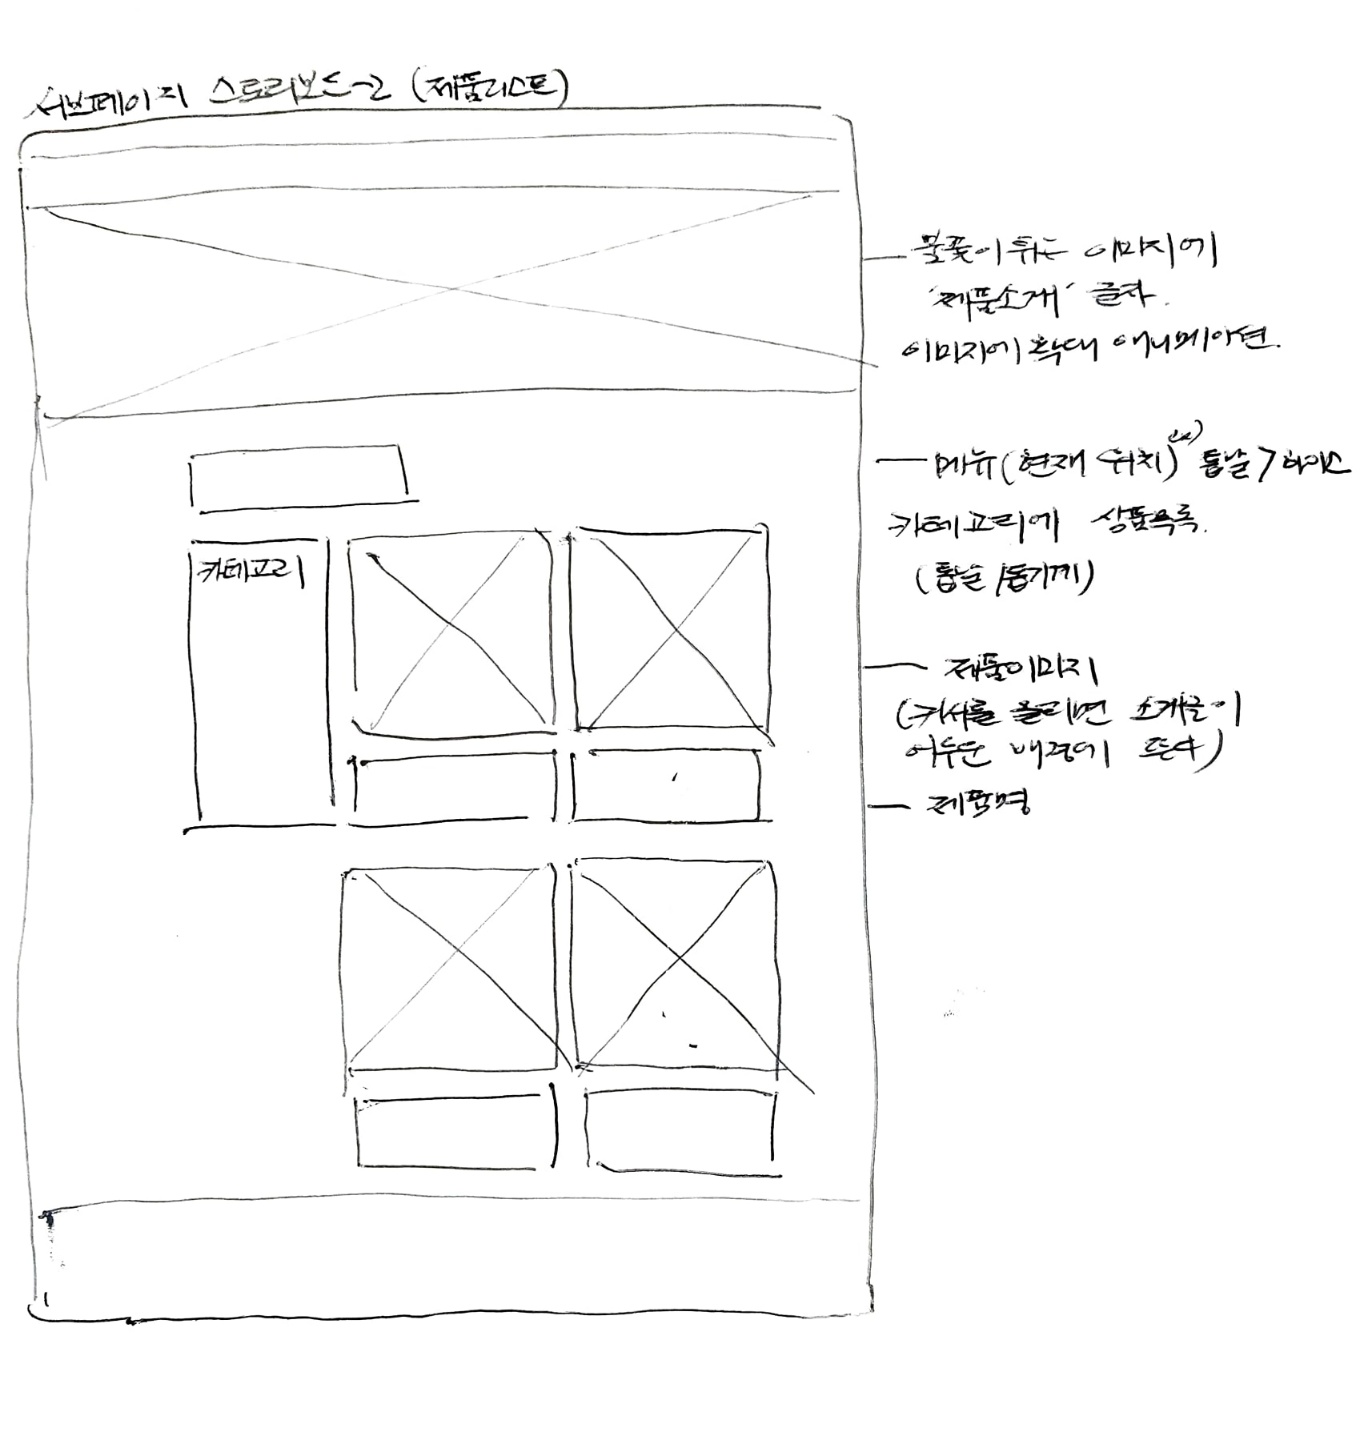 서브페이지 스토리보드-2 (제품리스트)
불꽃이 튀는 이미지에
'제품소개' 글자.
이미지에 확대 애니메이션.
메뉴(현재 위치) ex) 톱날 > 하이스
카테고리에 상품목록.
(톱날/톱기계)
카테고리
제품이미지
(커서를 올리면 소개글이
어두운 배경에 뜬다)
제품명